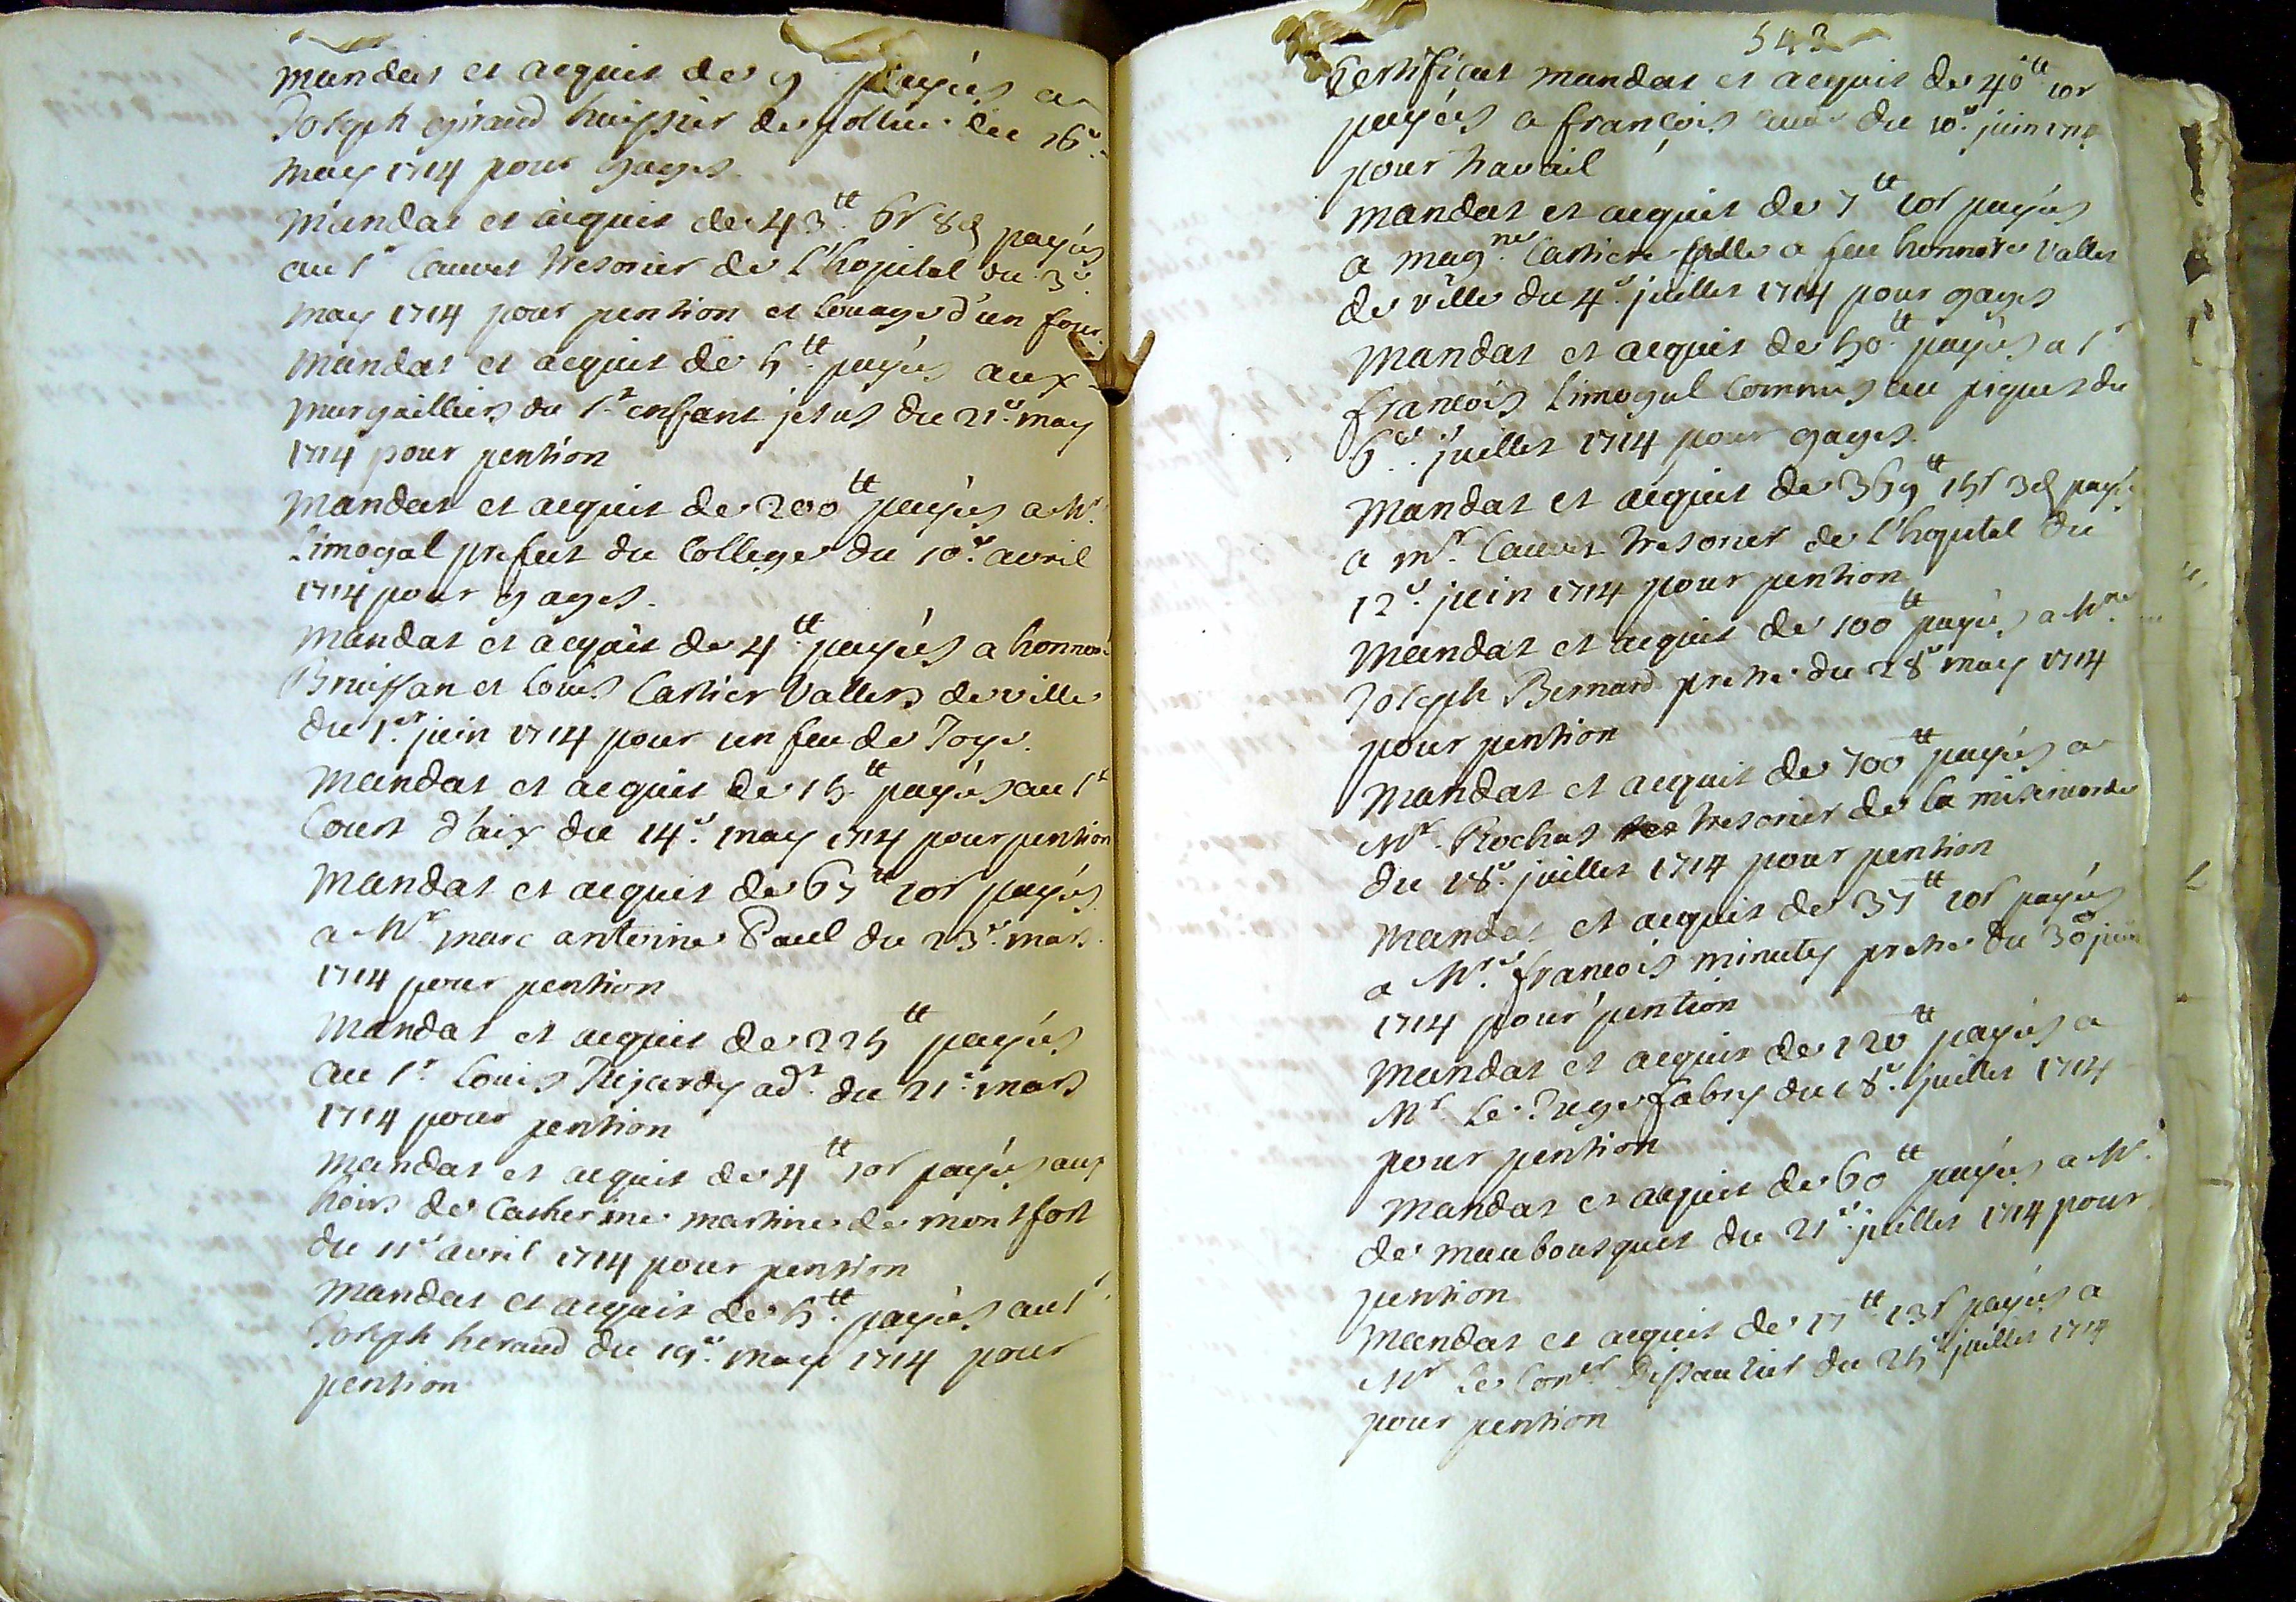 mandat et acquit de 9 payés a
Joseph giraud huissier de pollice du 16e.
may 1714 pour gages.
mandat et acquit de 43tt. 6s 8d payés
au sr Cauvet tresorier de L'hopital du 3e.
may 1714 pour pention et Louage d'un four.
mandat et acquit de 5tt. payés aux
murgailliers du st. enfant jesus du 21e. may
1714 pour pention
mandat et acquit de 200tt payés a Mr.
Limogal prefect du College du 10e. avril
1714 pour gages.
mandat et acquit de 4tt. payés a honnoré
Bruissan et Louis Cartier Vallets de ville
du 1er. juin 1714 pour un feu de Joye.
mandat et acquit de 15tt. payés au sr
Court d'aix du 14e. may 1714 pour pention
mandat et acquit de 67tt 10s payés
a Mr. marc antoine Paul du 23e. mars.
1714 pour pention
mandat et acquit de 225tt payés
au sr. Louis Rejardy adt. du 21e. mars
1714 pour pention
mandat et acquit de 4tt 10s payés aux
hoirs de Catherine martine de montfort
du 11e avril 1714 pour pention
mandat et acquit de 5tt. payés au sr.
Joseph heraud du 19e. may 1714 pour
pention
543
Certificat mandat et acquit de 40tt 10s
payés a françois du 10e. juin 1714
pour travail
mandat et acquit de 7tt 10s payés
a magne. Cartiere fille a feu honnoré Vallet
de ville du 4e. juillet 1714 pour gages
mandat et acquit de 50tt. payés a sr
françois Limogal Commis au piquet du
6e. juillet 1714 pour gages.
mandat et acquit de 369tt 15s 3d payés
a mr. Cauvet tresorier de L'hopital du
12e. juin 1714 pour pention
mandat et acquit de 100tt payés a Mre.
Joseph Bernard pretre du 28e may 1714
pour pention
mandat et acquit de 700tt payés a
Mr. Rochas tresorier de la misericorde
du 18e. juillet 1714 pour pention
mandat et acquit de 37tt 10s payés
a Mre. francois minuty pretre du 30e juin
1714 pour pention
mandat et acquit de 120tt payés a
Mr Le Juge fabry du 18e. juillet 1714
pour pention
mandat et acquit de 60tt payés a Mr.
de maubousquet du 21e. juillet 1714 pour
pention
mandat et acquit de 17tt 13s payés a
Mr Le Coner. Dissautier du 25e juillet 1714
pour pention